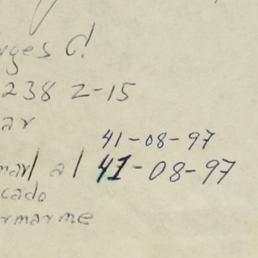 rges C!
238 2-15
ar
41-08-97
marl al 41-08-97
cado
rmarme